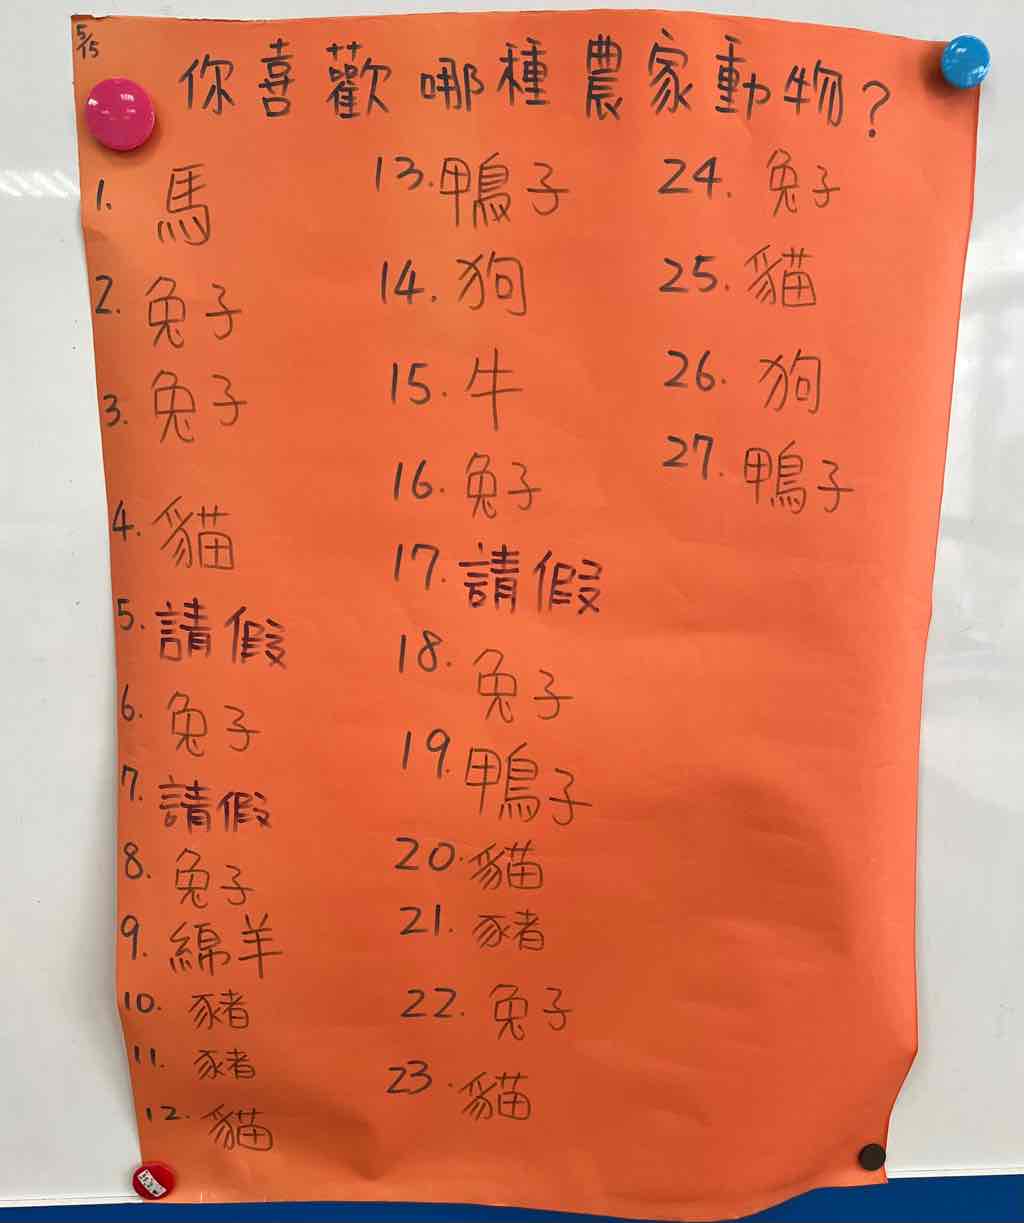 5/15
你喜歡哪種農家動物?
1. 馬
2. 兔子
3. 兔子
4. 貓
5. 請假
6. 兔子
7. 請假
8. 兔子
9. 綿羊
10. 豬
11. 豬
12. 貓
13. 鴨子
14. 狗
15. 牛
16. 兔子
17. 請假
18. 兔子
19. 鴨子
20. 貓
21. 豬
22. 兔子
23. 貓
24. 兔子
25. 貓
26. 狗
27. 鴨子